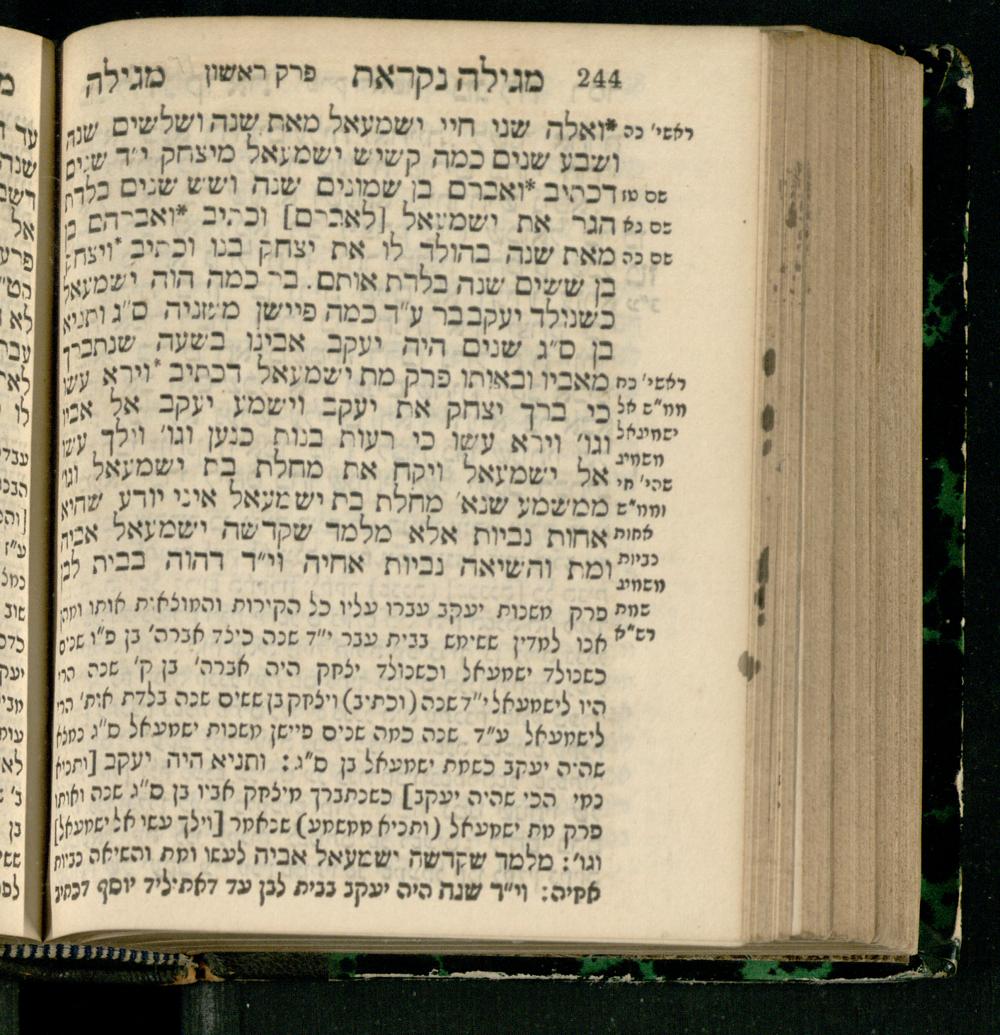 244 מגילה נקראת פרק ראשון מגילה
ראשי' כה *ואלה שני חיי ישמעאל מאת שנה ושלשים שנה
ושבע שנים כמה קשיש ישמעאל מיצחק י״ד שנים
שם טז דכתיב *ואברם בן שמונים שנה ושש שנים בלדת
שם כא הגר את ישמעאל [לאברם] וכתיב *ואברהם בן
שם כה מאת שנה בהולד לו את יצחק בנו וכתיב *ויצחק
בן ששים שנה בלדת אותם. בר כמה הוה ישמעאל
כשנולד יעקב בר ע״ד כמה פיישן משניה ס״ג ותניא
בן ס״ג שנים היה יעקב אבינו בשעה שנתברך
ראשי' כח מאביו ובאותו פרק מת ישמעאל דכתיב *וירא עשו
כי ברך יצחק את יעקב וישמע יעקב אל אביו
וגו' וירא עשו כי רעות בנות כנען וגו' וילך עשו
אל ישמעאל ויקח את מחלת בת ישמעאל וגו'
ממשמע שנא' מחלת בת ישמעאל איני יודע שהיא
אחות נביות אלא מלמד שקדשה ישמעאל אביה
ומת והשיאה נביות אחיה וי״ד דהוה בבית לבן
ממ״ש אל
ישמעאל
משמיב
שהי' חי
וממ״ש
אחות
נביות
משמיב
שמת
רש״א
פרק משנות יעקב עברו עליו כל הקירות והמוצאות אותו ומהן
אנו למדין ששימש בבית עבר י״ד שנה כילד אברה' בן פ״ו שנים
כשנולד ישמעאל וכשנולד יצחק היה אברה' בן ק' שנה הרי
היו לישמעאל י״ד שנה (וכתיב) ויצחק בן ששים שנה בלדת אות' הרי
לישמעאל ע״ד שנה כמה שנים פיישן משנות ישמעאל ס״ג נמצא
שהיה יעקב כשמת ישמעאל בן ס״ג: ותניא היה יעקב [ותניא
נמי הכי שהיה יעקב] כשנתברך מיצחק אביו בן ס״ג שנה ואותו
פרק מת ישמעאל (ותניא ממשמע) שנאמר [וילך עשו אל ישמעאל]
וגו': מלמד שקדשה ישמעאל אביה לעשו ומת והשיאה נביות
אחיה: וי״ד שנה היה יעקב בבית לבן עד דאתיליד יוסף דכתיב